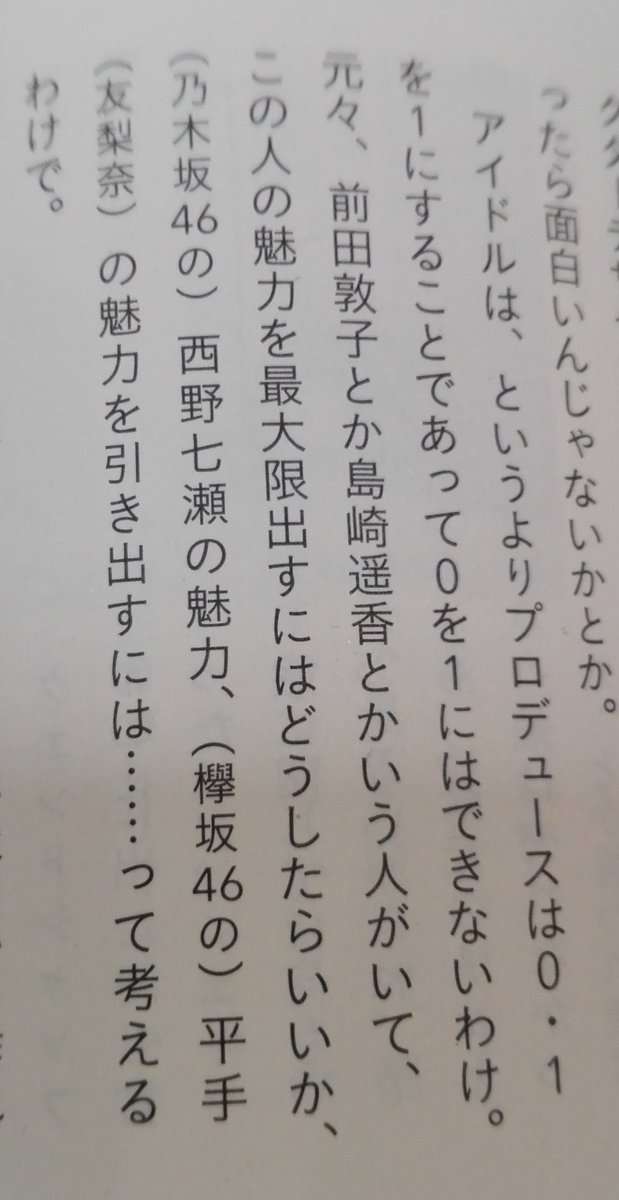 ったら面白いんじゃないかとか。
アイドルは、というよりプロデュースは0・1
を1にすることであって0を1にはできないわけ。
元々、前田敦子とか島崎遥香とかいう人がいて、
この人の魅力を最大限出すにはどうしたらいいか、
(乃木坂46の)西野七瀬の魅力、(欅坂46の)平手
(友梨奈)の魅力を引き出すには……って考える
わけで。